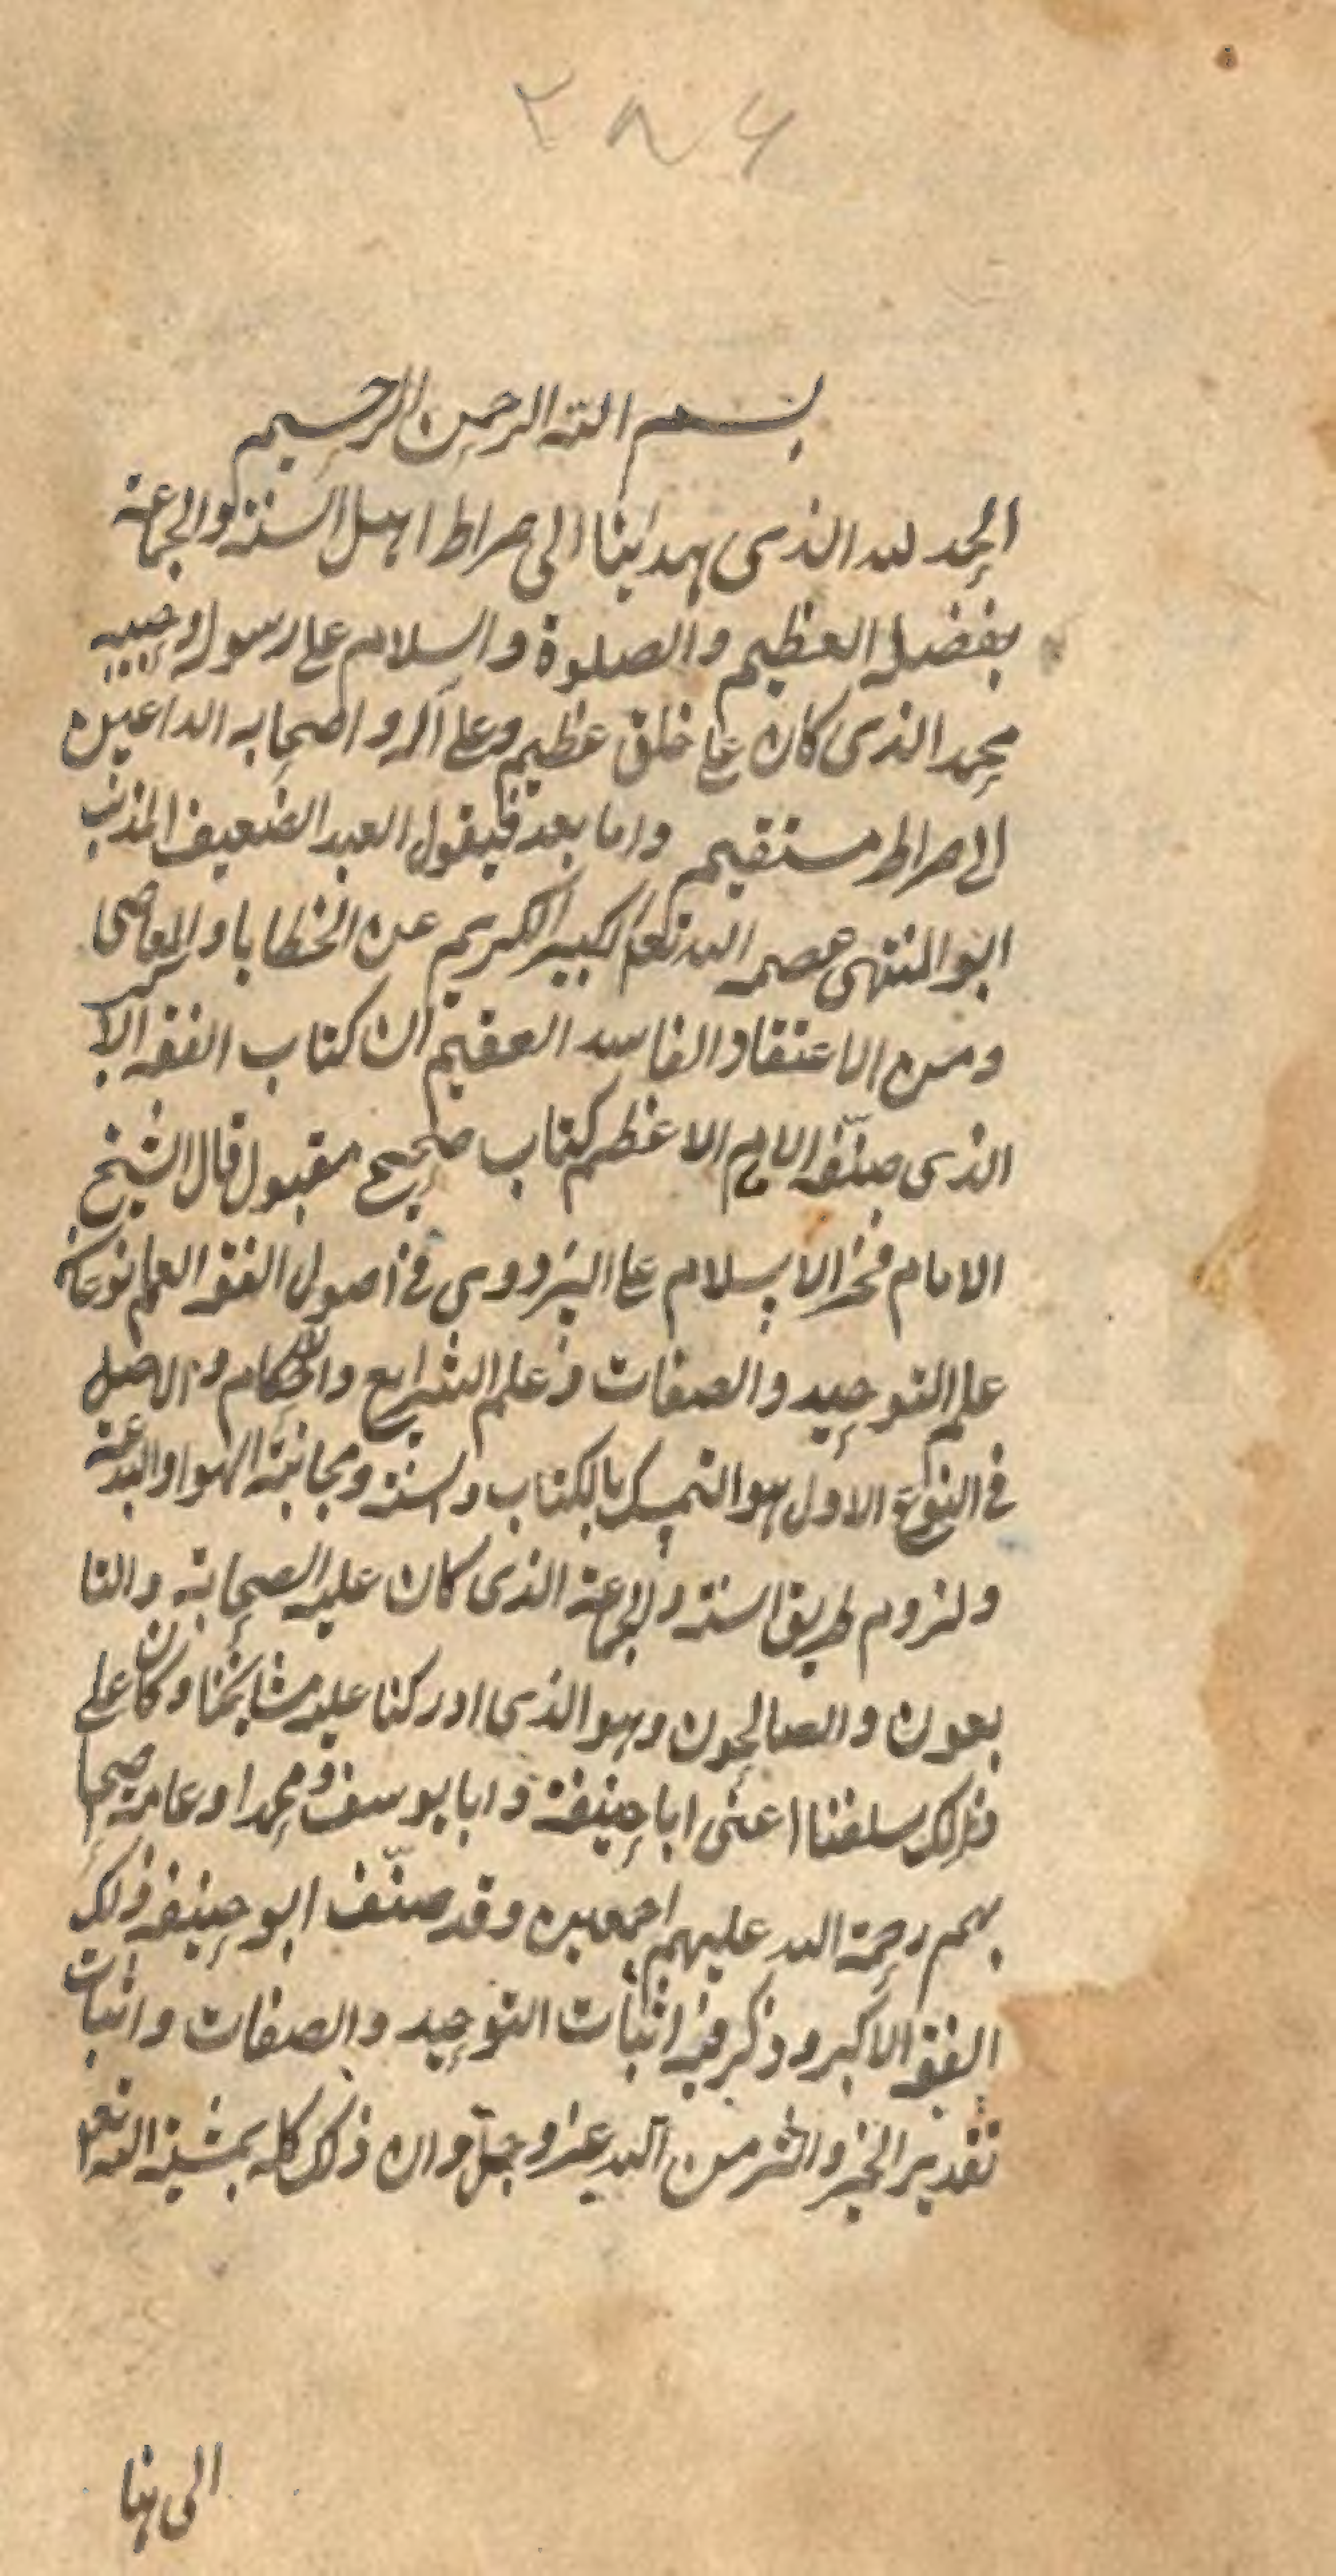 ۲۸۶
بسم الله الرحمن الرحيم
الحمد لله الذى هدانا الى صراط اهل السنة والجماعة
بفضله العظيم والصلوة والسلام على رسوله وحبيبه
محمد الذى كان على خلق عظيم وعلى آله واصحابه الداعين
الى صراط مستقيم واما بعد فيقول العبد الضعيف المذنب
ابو المنتهى عصمه الله تعم الكبير الكريم عن الخطايا والمعاصى
ومن الاعتقاد الفاسد العقيم ان كتاب الفقه الاكبر
الذى صنّفه الامام الاعظم كتاب صحيح مقبول قال الشيخ
الامام فخر الاسلام على البزدوى فى اصول الفقه العلم نوعان
علم التوحيد والصفات وعلم الشرايع والاحكام والاصل
فى النوع الاول هو التمسك بالكتاب والسنة ومجانبة الهوا والبدعة
ولزوم طريق السنة والجماعة الذى كان عليه الصحابة والتا
بعون والصالحون وهو الذى ادركنا عليه مشايخنا وكان على
ذلك سلفنا اعنى ابا حنيفة وابا يوسف ومحمدا وعامة اصحا
بهم رحمة الله عليهم اجمعين وقد صنّف ابو حنيفة فى ذلك
الفقه الاكبر وذكر فيه اثبات التوحيد والصفات واثبات
تقدير الخير والشر من الله عز وجل وان ذلك كله بمشية الله تعم
الى هنا